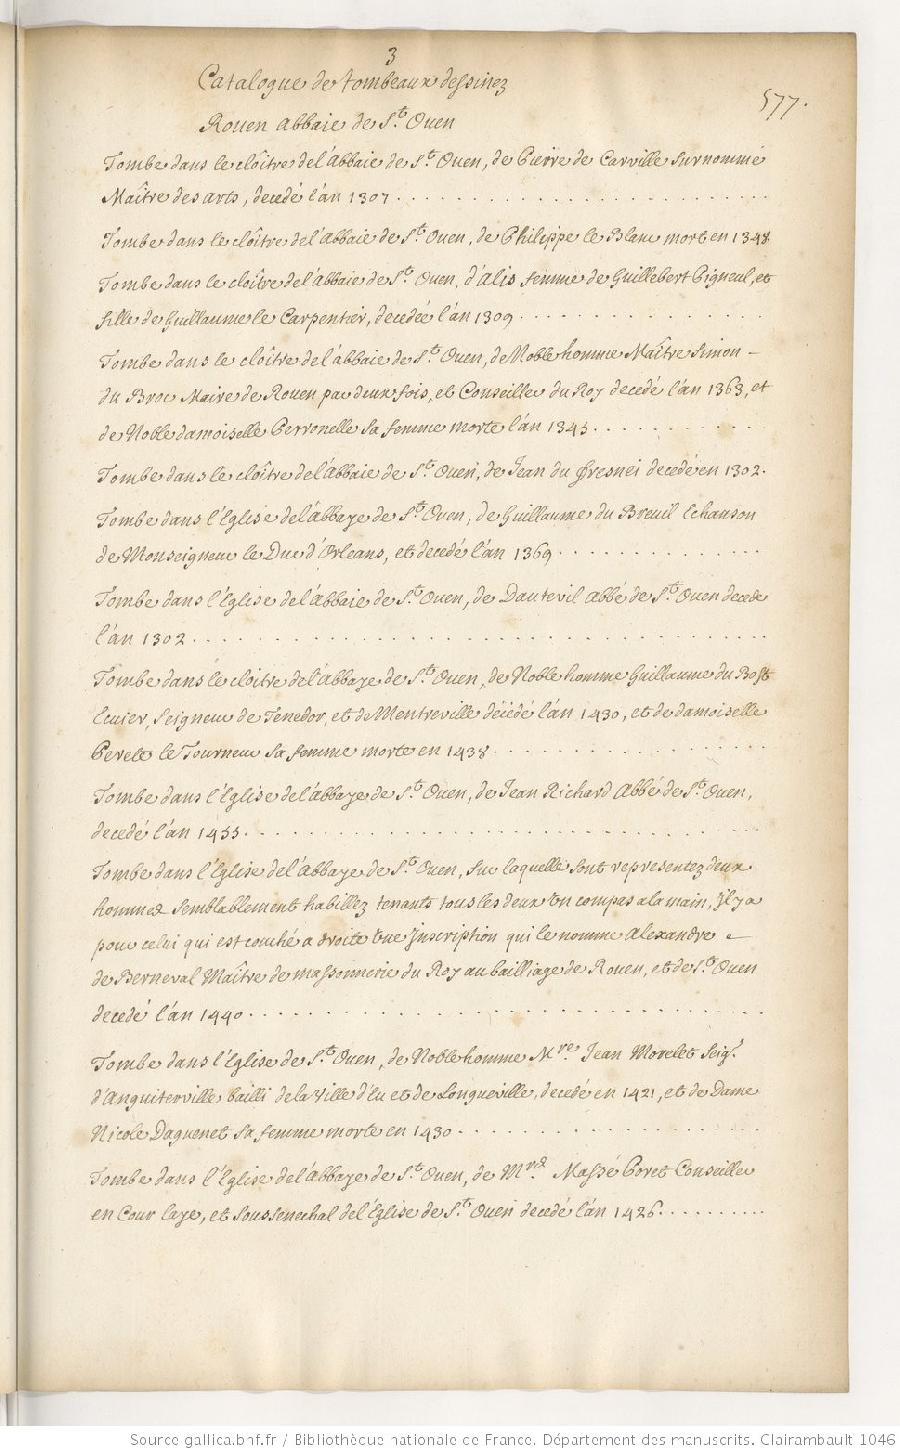 3
Catalogue de tombeaux dessinez
577.
Rouen Abbaie de S.t Ouen
Tombe dans le cloître de l'Abbaie de S.t Ouen, de Pierre de Carville surnommé
Maître des arts, decedé l'an 1307
Tombe dans le cloître de l'Abbaie de S.t Ouen, de Philippe le Blanc mort en 1348
Tombe dans le cloître de l'Abbaie de S.t Ouen, d'Alis femme de Guillebert Pigneul, et
fille de Guillaume le Carpentier, decedée l'an 1309
Tombe dans le cloître de l'abbaie de S.t Ouen, de Noble homme Maître Simon -
du Broc Maire de Rouen par deux fois, et Conseiller du Roy decedé l'an 1363, et
de Noble damoiselle Perronelle sa femme morte l'an 1345
Tombe dans le cloître de l'Abbaie de S.t Ouen, de Jean du Fresnei decedé en 1302.
Tombe dans l'Eglise de l'Abbaye de S.t Ouen, de Guillaume du Breuil Echanson
de Monseigneur le Duc d'Orleans, et decedé l'an 1369
Tombe dans l'Eglise de l'Abbaie de S.t Ouen, de Dautevil Abbé de S.t Ouen decede
l'an 1302
Tombe dans le cloitre de l'Abbaye de S.t Ouen, de Noble homme Guillaume du Bost
Ecuier, Seigneur de Tenedor, et de Mentreville décédé l'an 1430, et de damoiselle
Perete le Tourneur sa femme morte en 1438
Tombe dans l'Eglise de l'abbaye de S.t Ouen, de Jean Richard Abbé de S.t Ouen,
decedé l'an 1455
Tombe dans l'Eglise de l'Abbaye de S.t Ouen, sur laquelle sont representez deux
hommes semblablement habillez tenants tous les deux un compas a la main, Il y a
pour celui qui est couché a droite une Inscription qui le nomme Alexandre -
de Berneval Maître de massonnerie du Roy au bailliage de Rouen, et de S.t Ouen
decedé l'an 1440
Tombe dans l'Eglise de S.t Ouen, de Noble homme M.re Jean Morelet Seig.r
d'Anguiterville bailli de la Ville d'Eu et de Longueville, decedé en 1421, et de Dame
Nicole Daguenet sa femme morte en 1430
Tombe dans l'Eglise de l'Abbaye de S.t Ouen, de Massé Poret Conseiller
en Cour laye, et soussenechal de l'Eglise de S.t Ouen decedé l'an 1426
Source gallica.bnf.fr / Bibliothèque nationale de France. Département des manuscrits. Clairambault 1046